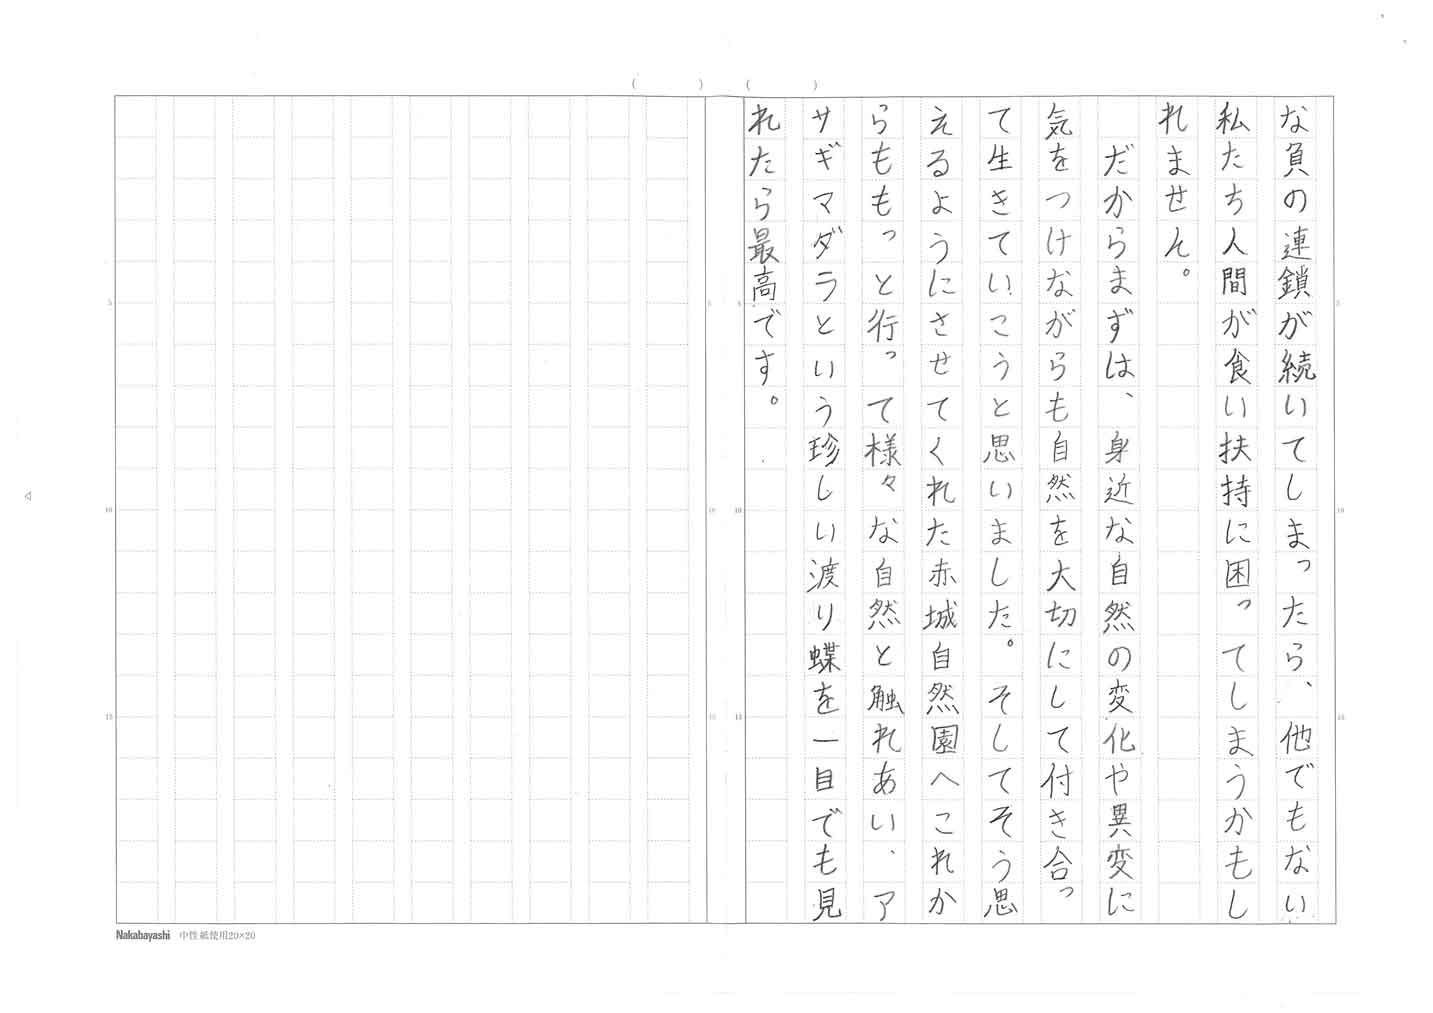 な負の連鎖が続いてしまったら、他でもない
私たち人間が食い扶持に困ってしまうかもし
れません。
だからまずは、身近な自然の変化や異変に
気をつけながらも自然を大切にして付き合っ
て生きていこうと思いました。そしてそう思
えるようにさせてくれた赤城自然園へこれか
らももっと行って様々な自然と触れあい、ア
サギマダラという珍しい渡り蝶を一目でも見
れたら最高です。
Nakabayashi 中性紙使用20×20